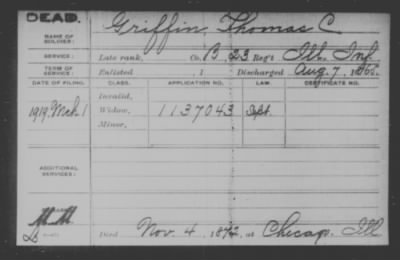 DEAD.
NAME OF SOLDIER: Griffin, Thomas C
SERVICE: Late rank, Co. B, 23 Reg't Ill. Inf.
TERM OF SERVICE: Enlisted , 1 Discharged Aug. 7, 1865
DATE OF FILING. CLASS. APPLICATION NO. LAW. CERTIFICATE NO.
Invalid,
1919, Mch. 1 Widow, 1137043 Sept.
Minor,
ADDITIONAL SERVICES:
Died Nov. 4, 1872, at Chicago, Ill